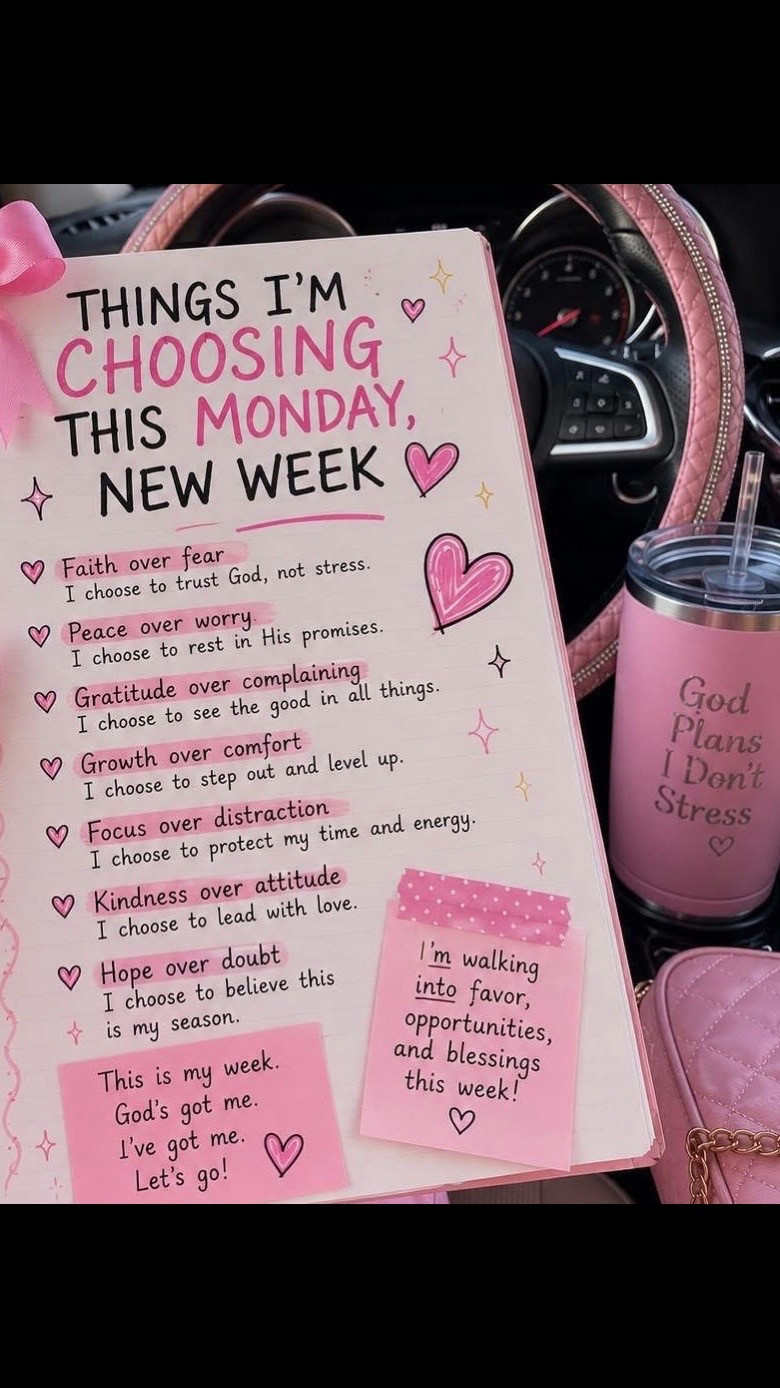 THINGS I'M
CHOOSING
THIS MONDAY,
NEW WEEK
Faith over fear
I choose to trust God, not stress.
Peace over worry
I choose to rest in His promises.
Gratitude over complaining
I choose to see the good in all things.
Growth over comfort
I choose to step out and level up.
Focus over distraction
I choose to protect my time and energy.
Kindness over attitude
I choose to lead with love.
Hope over doubt
I choose to believe this
is my season.
This is my week.
God's got me.
I've got me.
Let's go!
I'm walking
into favor,
opportunities,
and blessings
this week!
God
Plans
I Don't
Stress